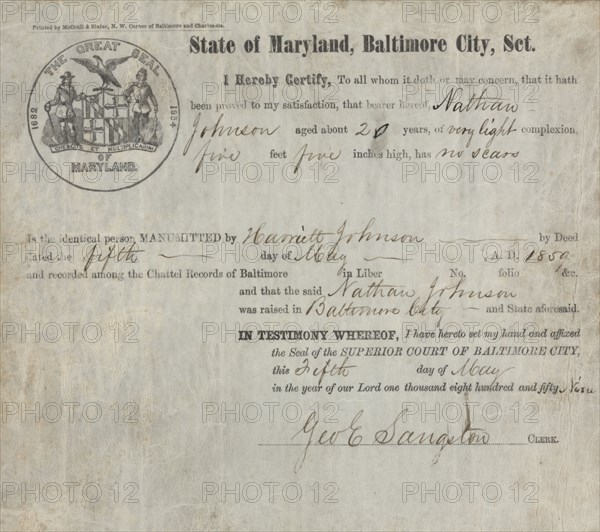 Printed by McGuill & Slater, N. W. Corner of Baltimore and Charles-sts.
THE GREAT SEAL
1632
1854
CRESCITE ET MULTIPLICAMINI
OF
MARYLAND.
State of Maryland, Baltimore City, Sct.
I Hereby Certify, To all whom it doth or may concern, that it hath
been proved to my satisfaction, that bearer hereof, Nathan
Johnson aged about 20 years, of very light complexion,
five feet five inches high, has no scars
Is the identical person MANUMITTED by Harriett Johnson by Deed
dated the fifth day of May A. D. 1859
and recorded among the Chattel Records of Baltimore in Liber No. folio &c.
and that the said Nathan Johnson
was raised in Baltimore City and State aforesaid.
IN TESTIMONY WHEREOF, I have hereto set my hand and affixed
the Seal of the SUPERIOR COURT OF BALTIMORE CITY,
this Fifth day of May
in the year of our Lord one thousand eight hundred and fifty Nine
Geo E Sangston CLERK.
PHOTO12